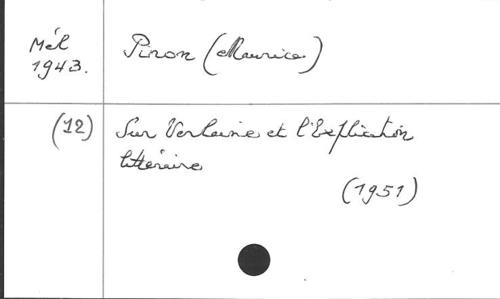 Mél
1943.
Piron (Maurice)
(12)
Sur Verlaine et l'Explication
littéraire
(1951)